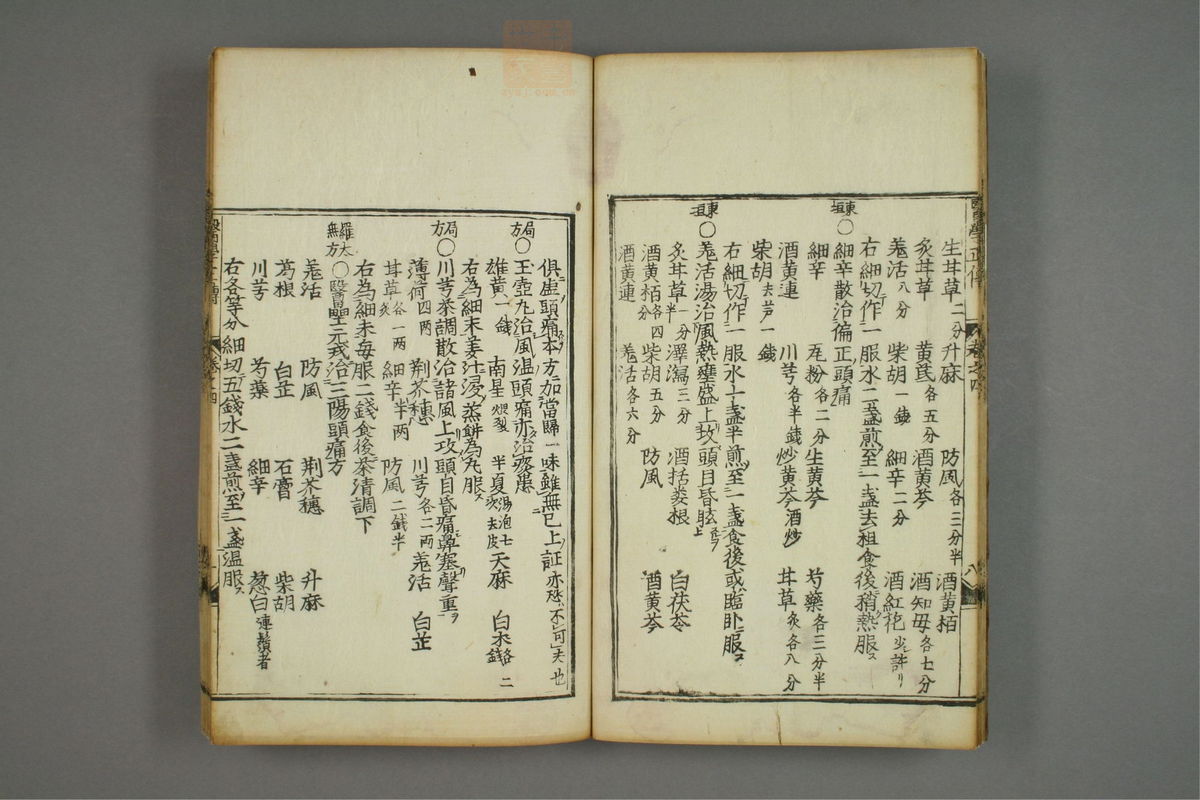 生甘草二分 升麻 防風各三分半 酒黄栢
炙甘草 黄芪各五分 酒黄芩 酒知母各七分
羗活八分 柴胡一錢 細辛二分 酒紅花少許
右細切作一服水二盞煎至一盞去柤食後稍熱服
東垣
○細辛散治偏正頭痛
細辛 瓦粉各二分 生黄芩 芍藥各三分半
酒黄連 川芎各半錢 炒黄芩酒炒 甘草炙各八分
柴胡去芦一錢
右細切作一服水上盞半煎至一盞食後或臨卧服
東垣
○羗活湯治風熱壅盛上攻頭目昏眩
炙甘草一分半 澤瀉三分 酒括蔞根 白茯苓
酒黄栢各四分 柴胡五分 防風 酒黄芩
酒黄連 羗活各六分
俱虚頭痛本方加當歸一味雖無已上証亦
局方
○玉壺丸治風温頭痛亦治痰患
雄黄一錢 南星煨裂 半夏湯泡七次去皮 天麻 白术各二錢
右為細末姜汁浸蒸餅為丸服
局方
○川芎茶調散治諸風上攻頭目昏痛鼻塞聲重
薄荷四兩 荆芥穗 川芎各二兩 羗活 白芷
甘草炙各一兩 細辛半兩 防風二錢半
右為細末毎服二錢食後茶清調下
羅太無方
○醫壘元戎治三陽頭痛方
羗活 防風 荆芥穗 升麻
葛根 白芷 石膏 柴胡
川芎 芍藥 細辛 葱白連鬚者
右各等分細切五錢水二盞煎至一盞温服